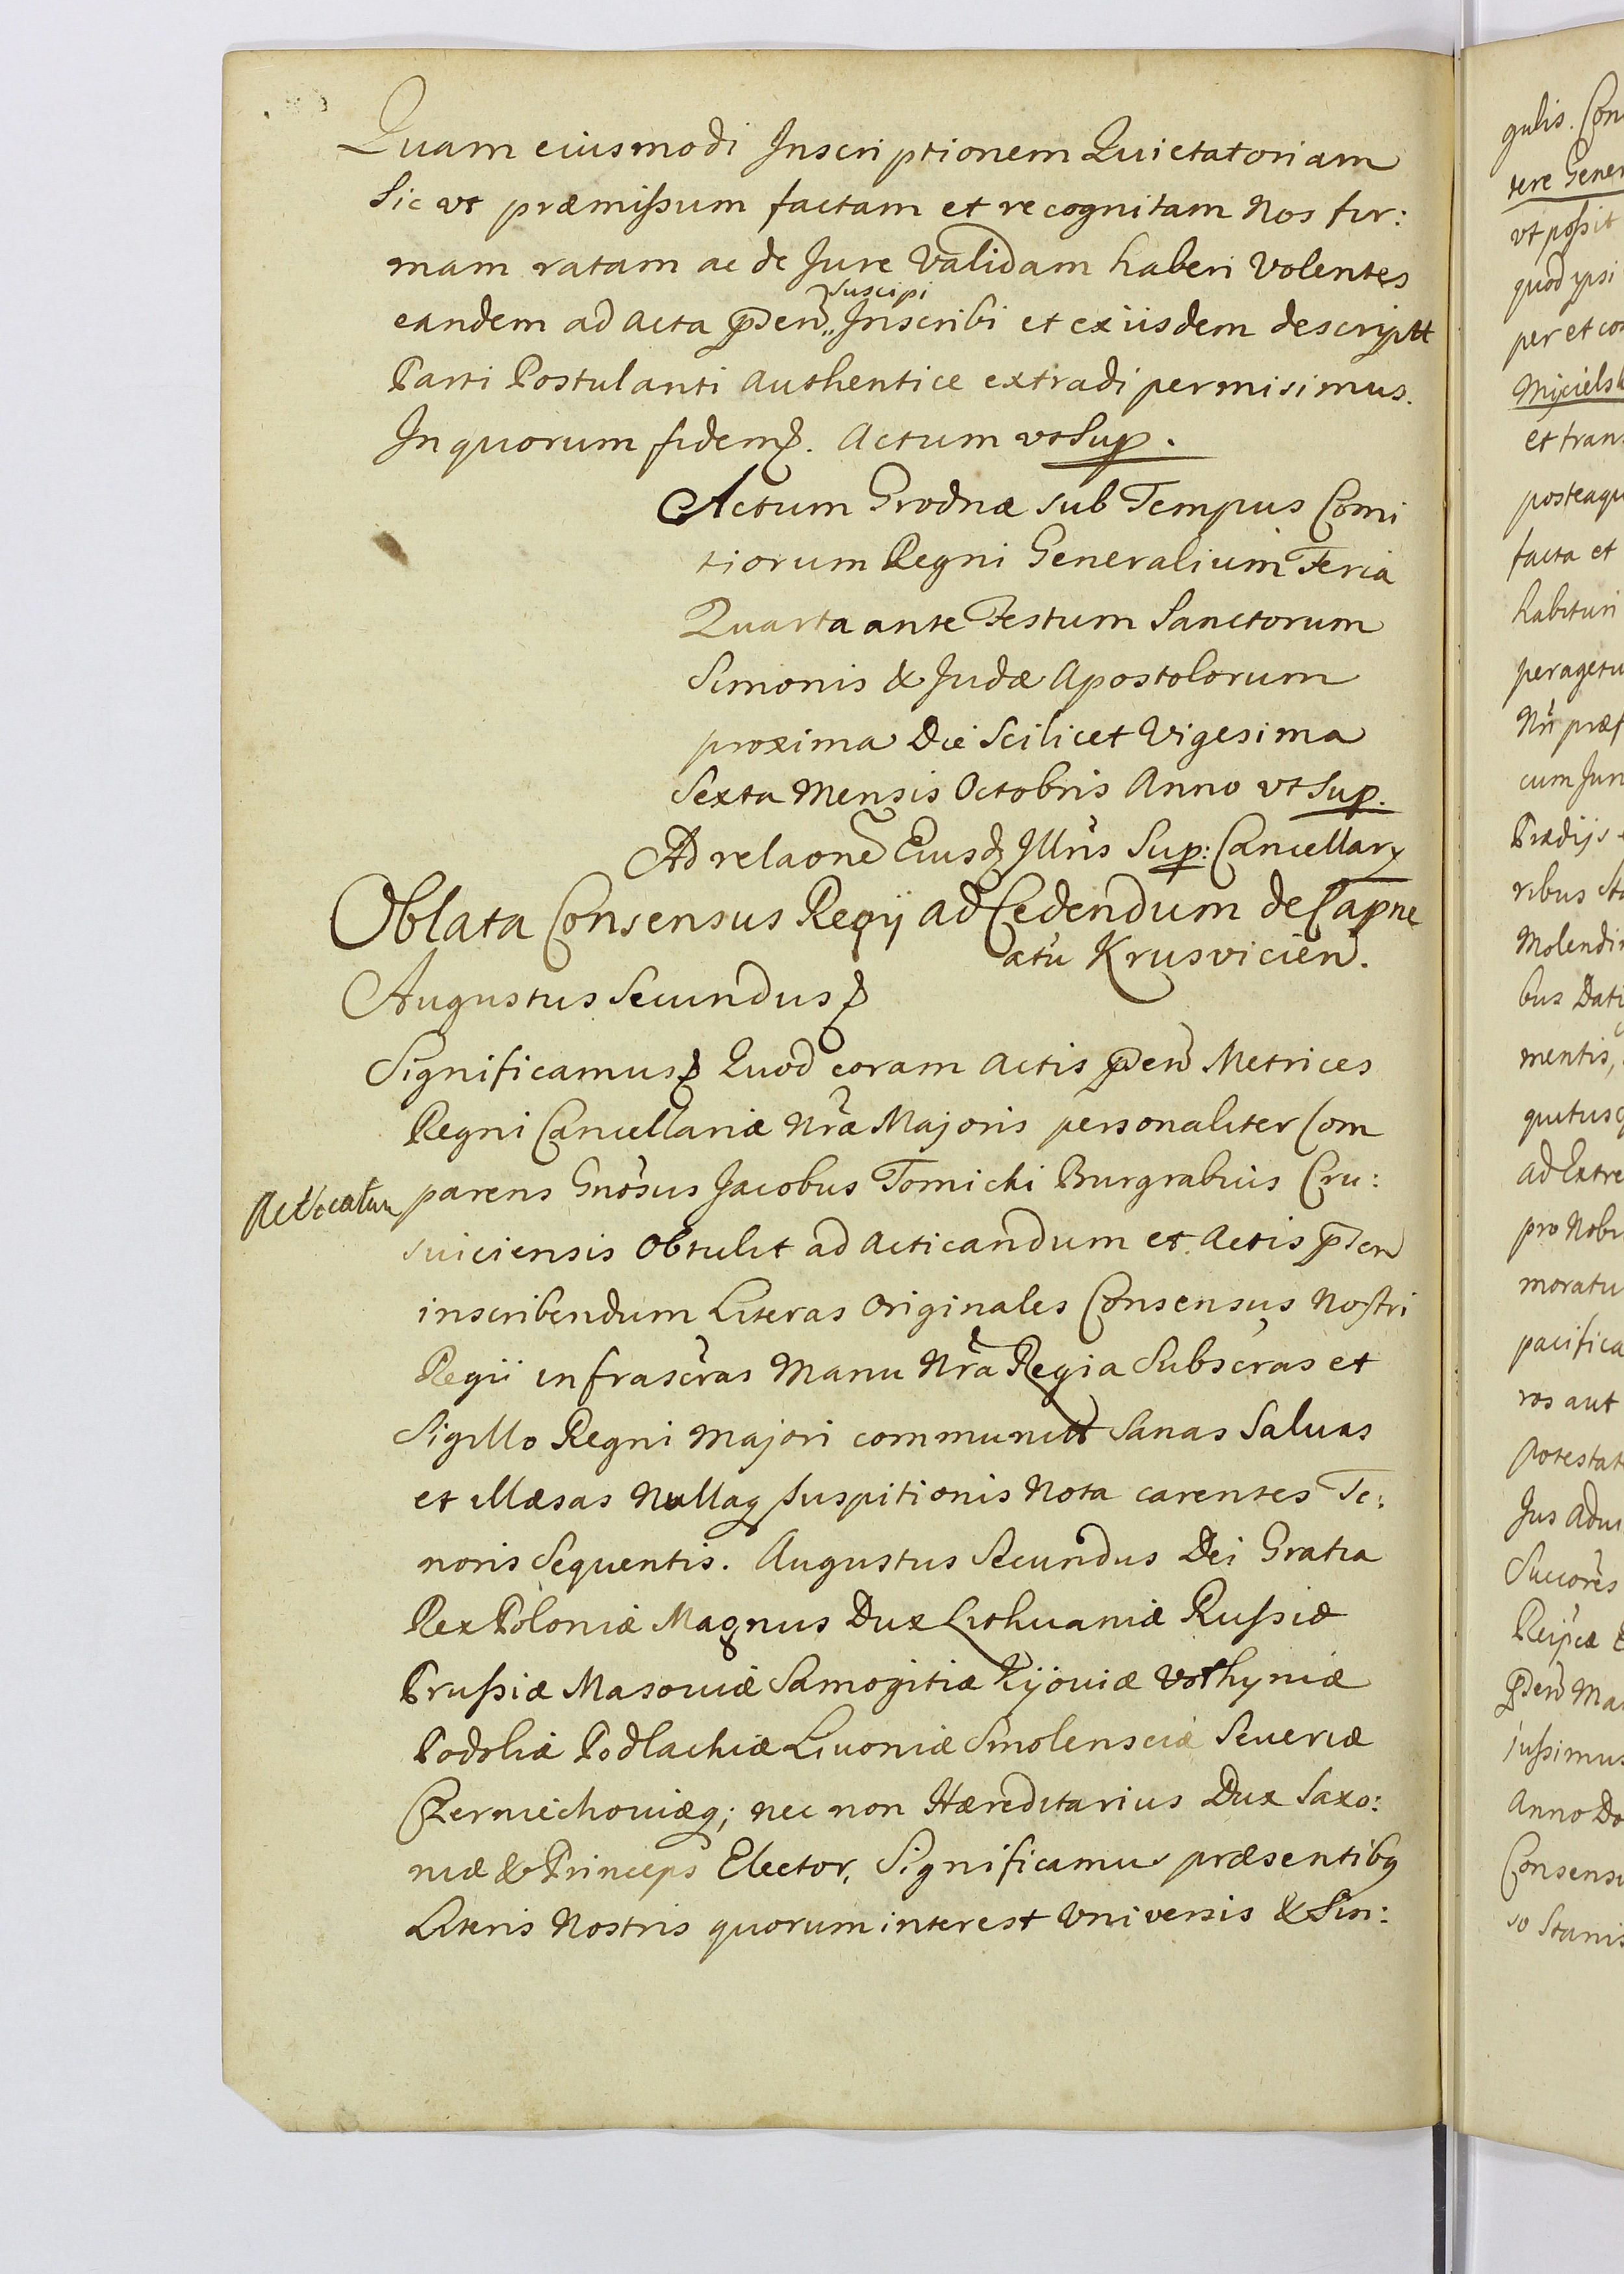 Quam eiusmodi Inscriptionem Quietatoriam
Sic vt præmissum factam et recognitam Nos fir:
mam ratam ac de Jure Validam haberi Volentes
suscipi
eandem ad acta p̄den Inscribi et ex iisdem descriptt
Parti Postulanti Authentice extradi permisimus.
In quorum fidem. Actum vt Sup.
Actum Grodnæ sub Tempus Comi
tiorum Regni Generalium Feria
Quarta ante Festum Sanctorum
Simonis & Judæ Apostolorum
proxima Die Scilicet Vigesima
Sexta Mensis Octobris Anno vt Sup.
Ad relaonẽ Eiusdꝫ Illris Sup: Cancellary
Oblata Consensus Regij ad Cedendum de Capne
atu Krusvicien.
Augustus Secundus
Significamus Quod coram Actis p̄den Metrices
Regni Cancellariæ Nræ Majoris personaliter Com
parens Gnosus Jacobus Tomicki Burgrabius Cru:
suiciensis Obtulit ad Acticandum et Actis p̄den
inscribendum Literas Originales Consensus Nostri
Regii infrascras Manu Nra Regia Subscras et
Sigillo Regni Majori communitt Sanas Saluas
et illæsas Nullaqꝫ Suspitionis Nota carentes Te:
noris Sequentis. Augustus Secundus Dei Gratia
Rex Poloniæ Magnus Dux Lithuaniæ Russiæ
Prussiæ Masouiæ Samogitiæ Kijouiæ Volhyniæ
Podoliæ Podlachiæ Liuoniæ Smolensciæ Seueriæ
Czerniechouiæqꝫ; nec non Hæreditarius Dux Saxo:
niæ & Princeps Elector. Significamus præsentibꝫ
Literis Nostris quorum interest Vniversis & Sin:
gulis. Con
vt possit
quod ypsi
per et con
et trans
facta et
habituri
cum Jur
Molendin
mentis,
pro Nobi
moratu
pacifica
ros aut
potestat
Anno Do
Consensu